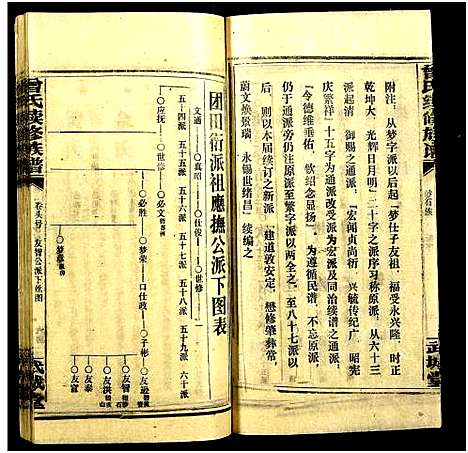 曾氏续修族谱
武城堂
附注：从“梦字派以后起“梦仕子友祖，福受永兴隆，时正
乾坤大，光辉日月明”二十字之派序习称原派，从六十三
派起清，御赐之通派，“宏闻贞尚衍，兴毓传纪广，昭宪
庆繁祥”十五字为通派改受派为宏派及同治续谱之通派，
“令德维垂佑，钦绍念显扬”，为遵循民谱，不忘原派，
仍于通派旁仍注原派以两全之，至繁字派以八十七派
后，则以本届续订之新派“建道敦安定，懋修肇彝常，
蔚文焕景瑞，永锡世绪昌”续编之
团田衍派祖应抚公派下图表
五十四派 五十五派 五十六派 五十七派 五十八派 五十九派 六十派
文通
应抚
世修
必文
必胜
梦荣
口仕政
子彬
友逊
友智
友洪
友泰
友富
曾氏续修族谱
卷头号
友智公派下丝图
武城堂